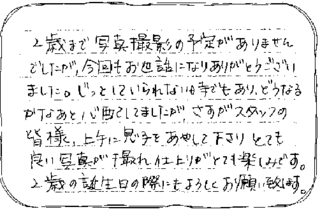 2歳まで写真撮影の予定がありません
でしたが、今回もお世話になりありがとうござい
ました。じっとしていられない時でもあり、どうなる
かなあと心配してましたが さすがスタッフの
皆様、上手に息子をあやして下さり とても
良い写真が撮れ仕上りがとても楽しみです。
2歳の誕生日の際にもよろしくお願い致します。